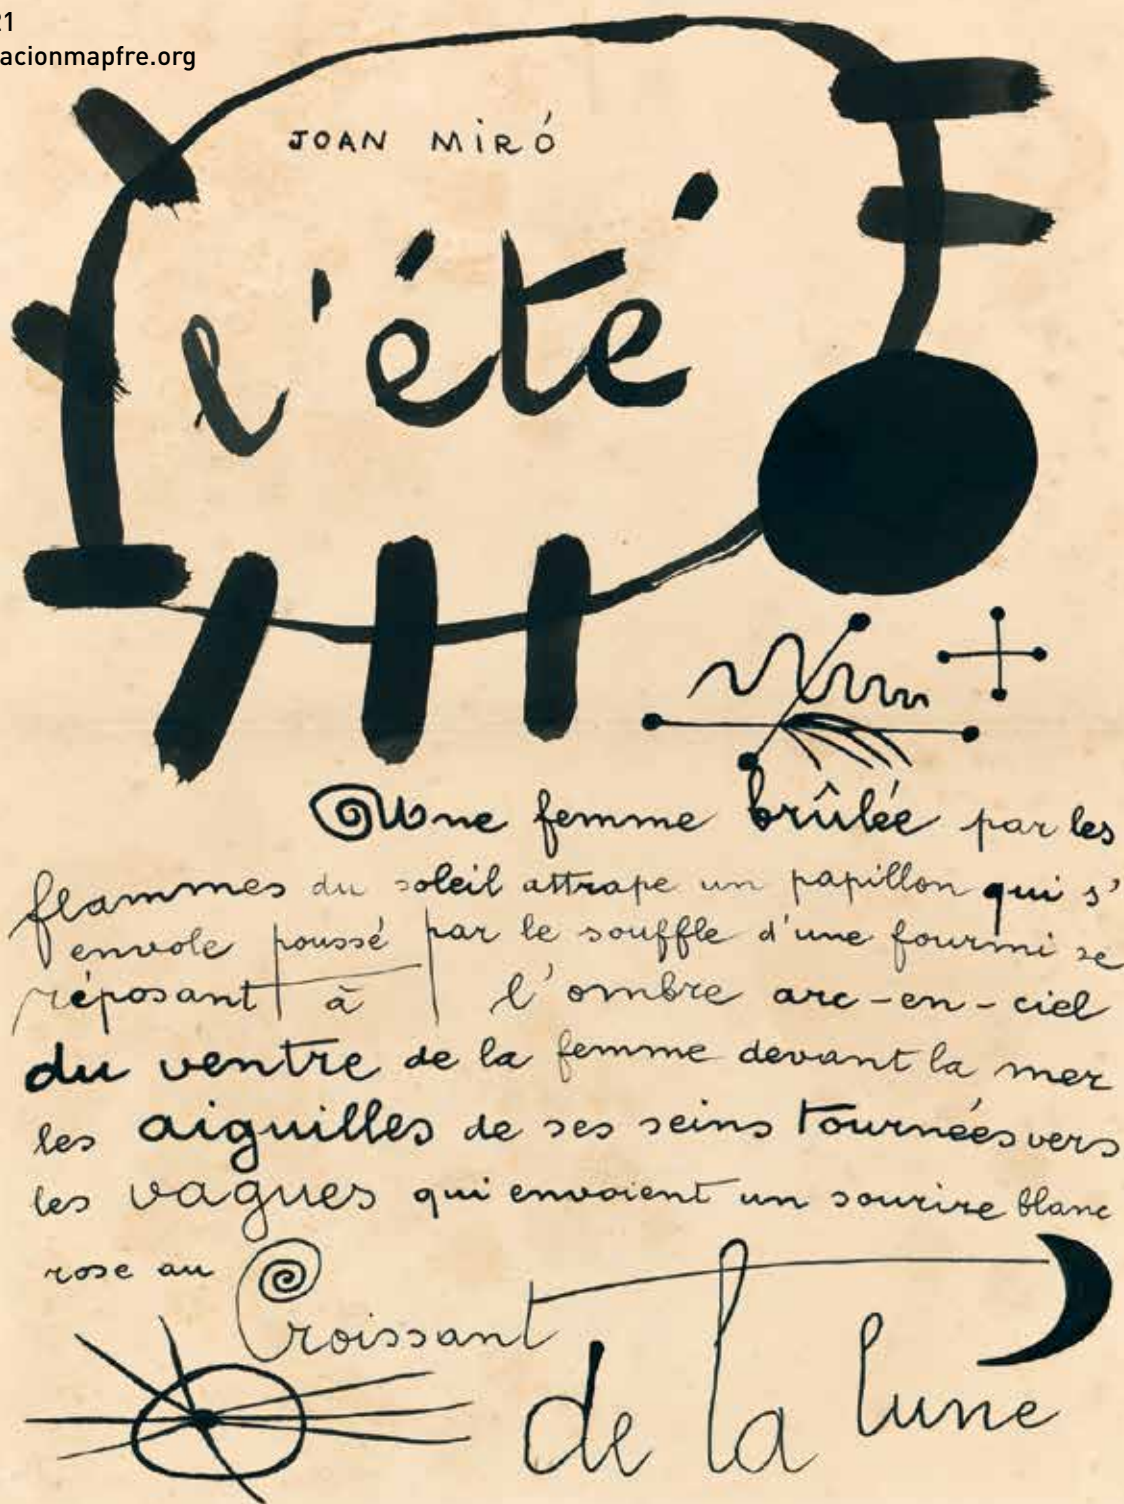 21
acionmapfre.org
JOAN MIRÓ
l'été
Une femme brûlée par les
flammes du soleil attrape un papillon qui s'
envole poussé par le souffle d'une fourmi se
réposant à l'ombre arc-en-ciel
du ventre de la femme devant la mer
les aiguilles de ses seins tournées vers
les vagues qui envoient un sourire blanc
rose au
Croissant
de la lune